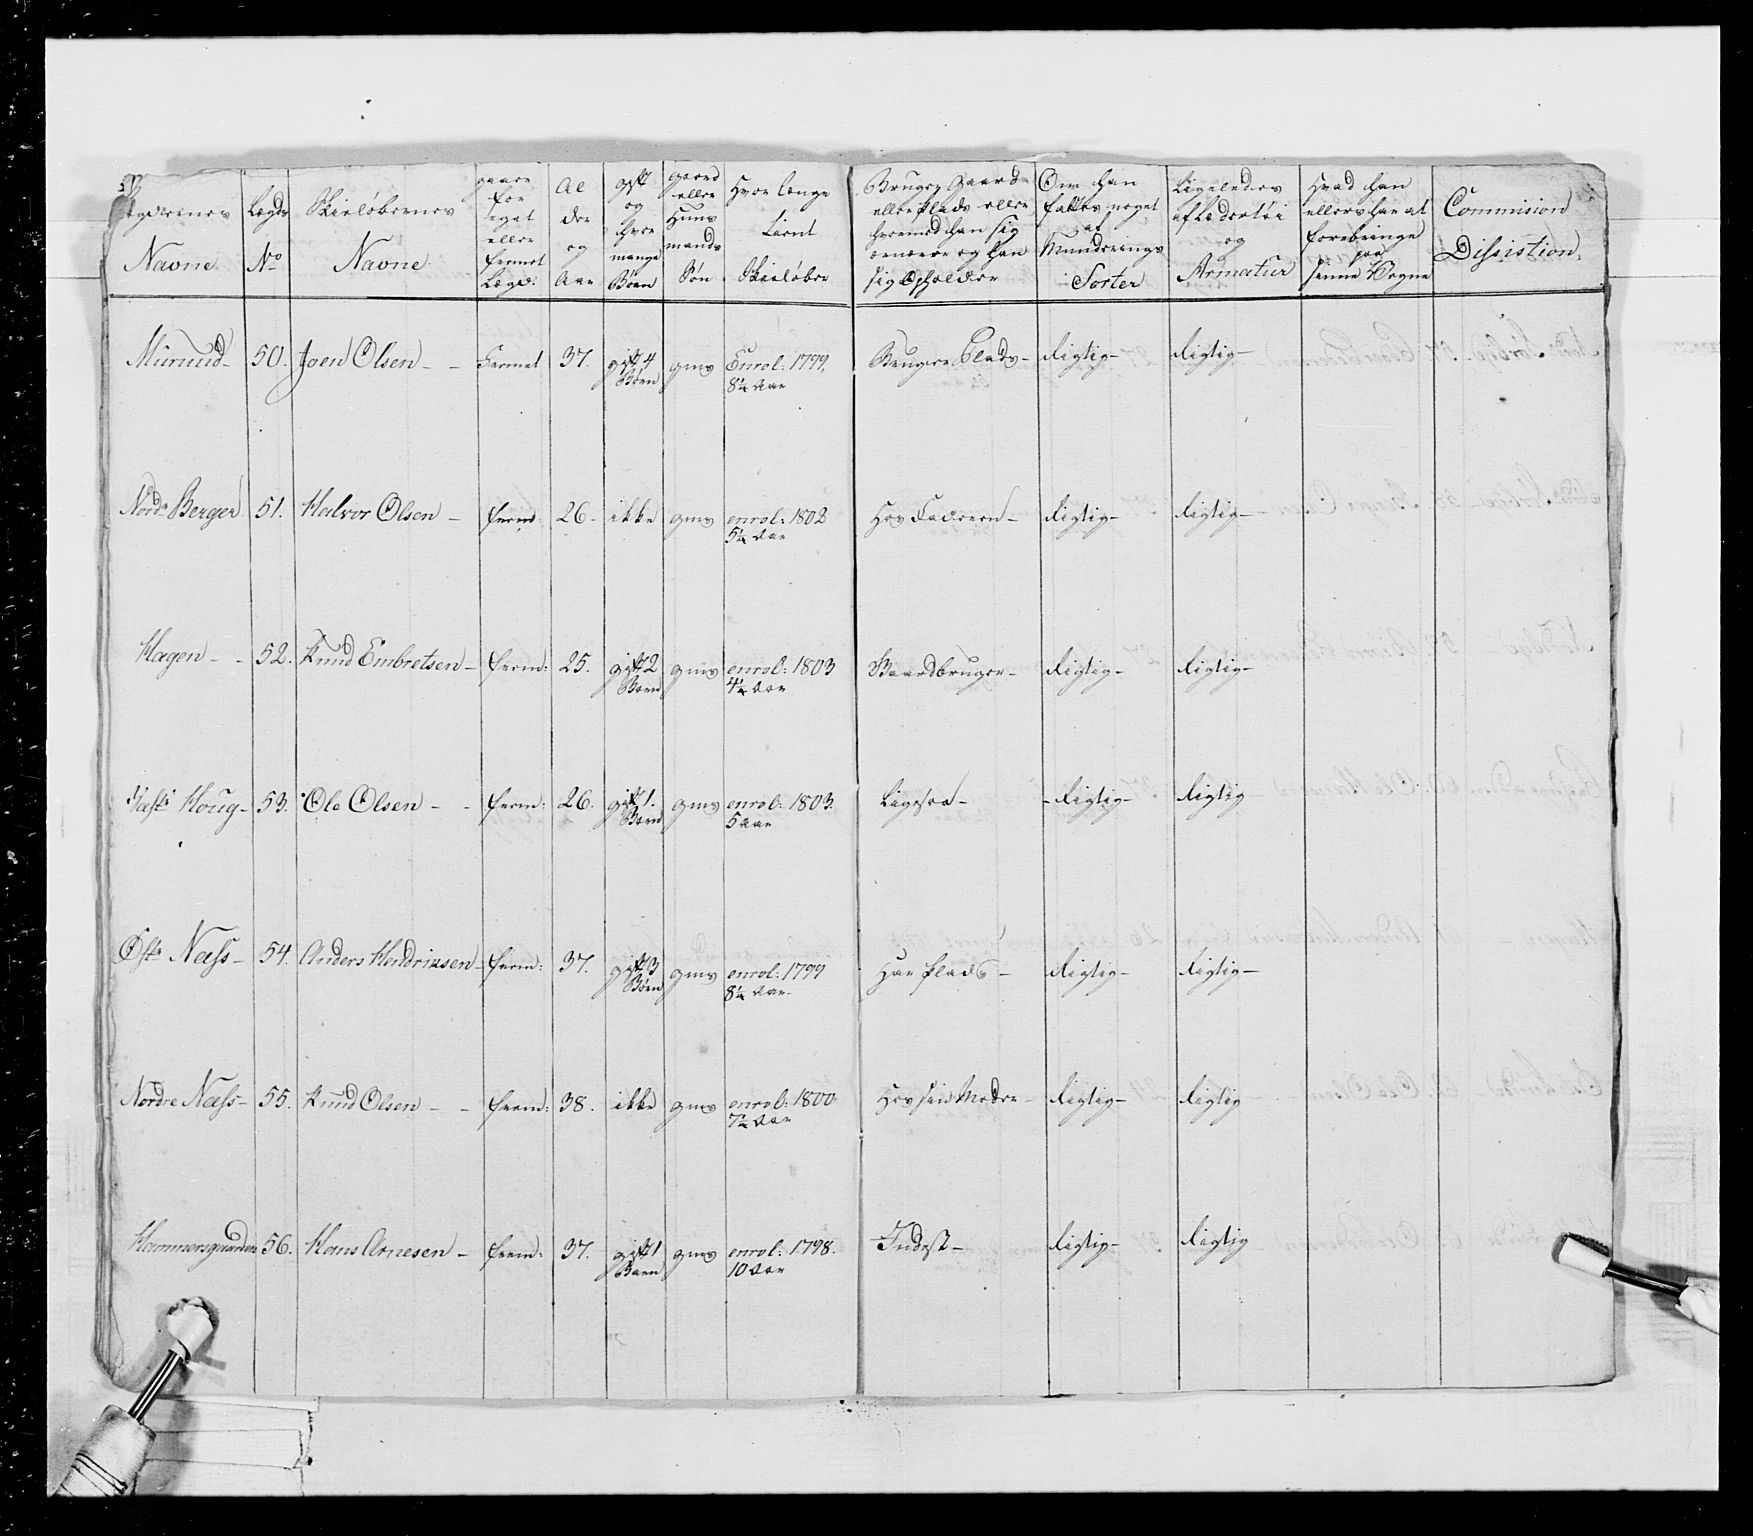 Lægdernes Navne | Lægds No | Skieløbernes Navne | gaaer for eget eller fremet Lægd: | Alder og Aar | gift og hvor mange Børn | gaard eller Huusmands Søn | Hvor længe tient Skieløber | Bruger Gaard eller Plads eller hvormed han sig ernærer og han sig Opholder | Om han fattes noget af Munderings Sorter | Ligeledes af Lædertøi og Armatur | Hvad han ellers har at forebringe paa sinne Vegne | Commision Dissistion.
Murud - | 50. | Joen Olsen - - | Fremet | 37. | gift 4 Børn | gms | Enrol: 1799. 8¼ Aar | Bruger Plads - | Rigtig - | Rigtig -
Nordr Berger | 51. | Halvor Olsen - | frem: | 26 - | ikke | gms | enrol: 1802 5¼ Aar | Hos Faderen - | Rigtig - | Rigtig -
Hagen - - | 52. | Knud Embretsen - | frem: | 25. | gift 2 Børn | gms | enrol: 1803 4¼ Aar | Gaardbruger - | Rigtig - | Rigtig -
Houg - | 53. | Ole Olsen - - | frem: | 26. | gift 1. Barn | gms | enrol: 1803. 5 Aar | Ligesaa - | - Rigtig - | Rigtig
Østr Næss - | 54. | Anders Hendriksen - | frem: | 37. | gift 3 Børn | gms | enrol: 1799 8¼ Aar - | Har Plads - | Rigtig - | Rigtig -
Nordre Næss - | 55. | Knud Olsen - - | frem: | 38. | ikke | gms | enrol: 1800 7¼ Aar | Hos sin Moder - | Rigtig - | Rigtig -
Hammersgaarden | 56. | Hans Arnesen - | frem: | 37. | gift 1 Barn | gms | enrol: 1798. 10 Aar | Inderst - | Rigtig - | Rigtig